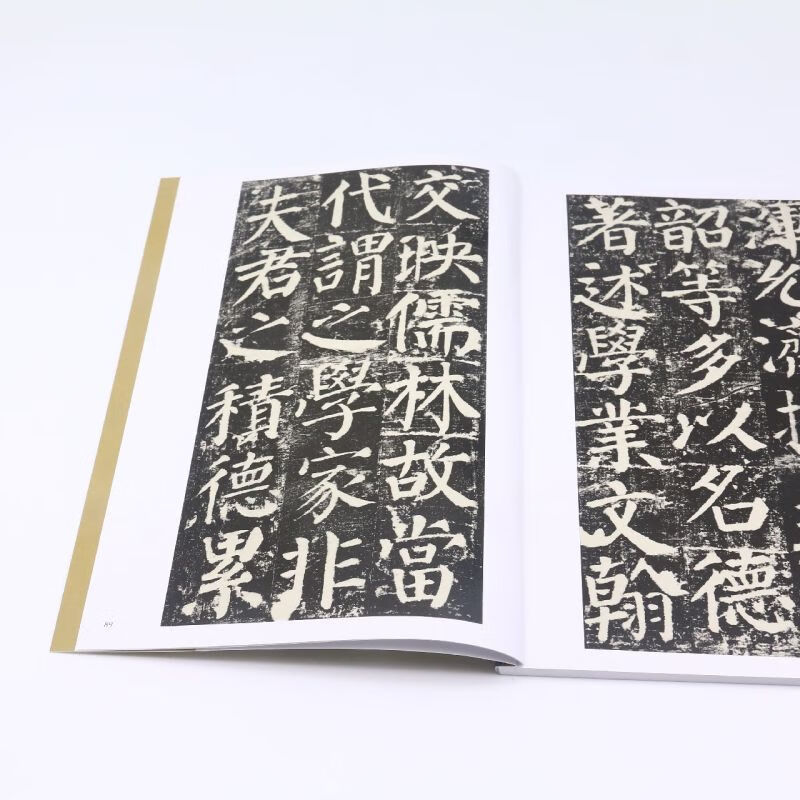 渾允濟
韶等多以名德
著述學業文翰
交映儒林故當
代謂之學家非
夫君之積德累